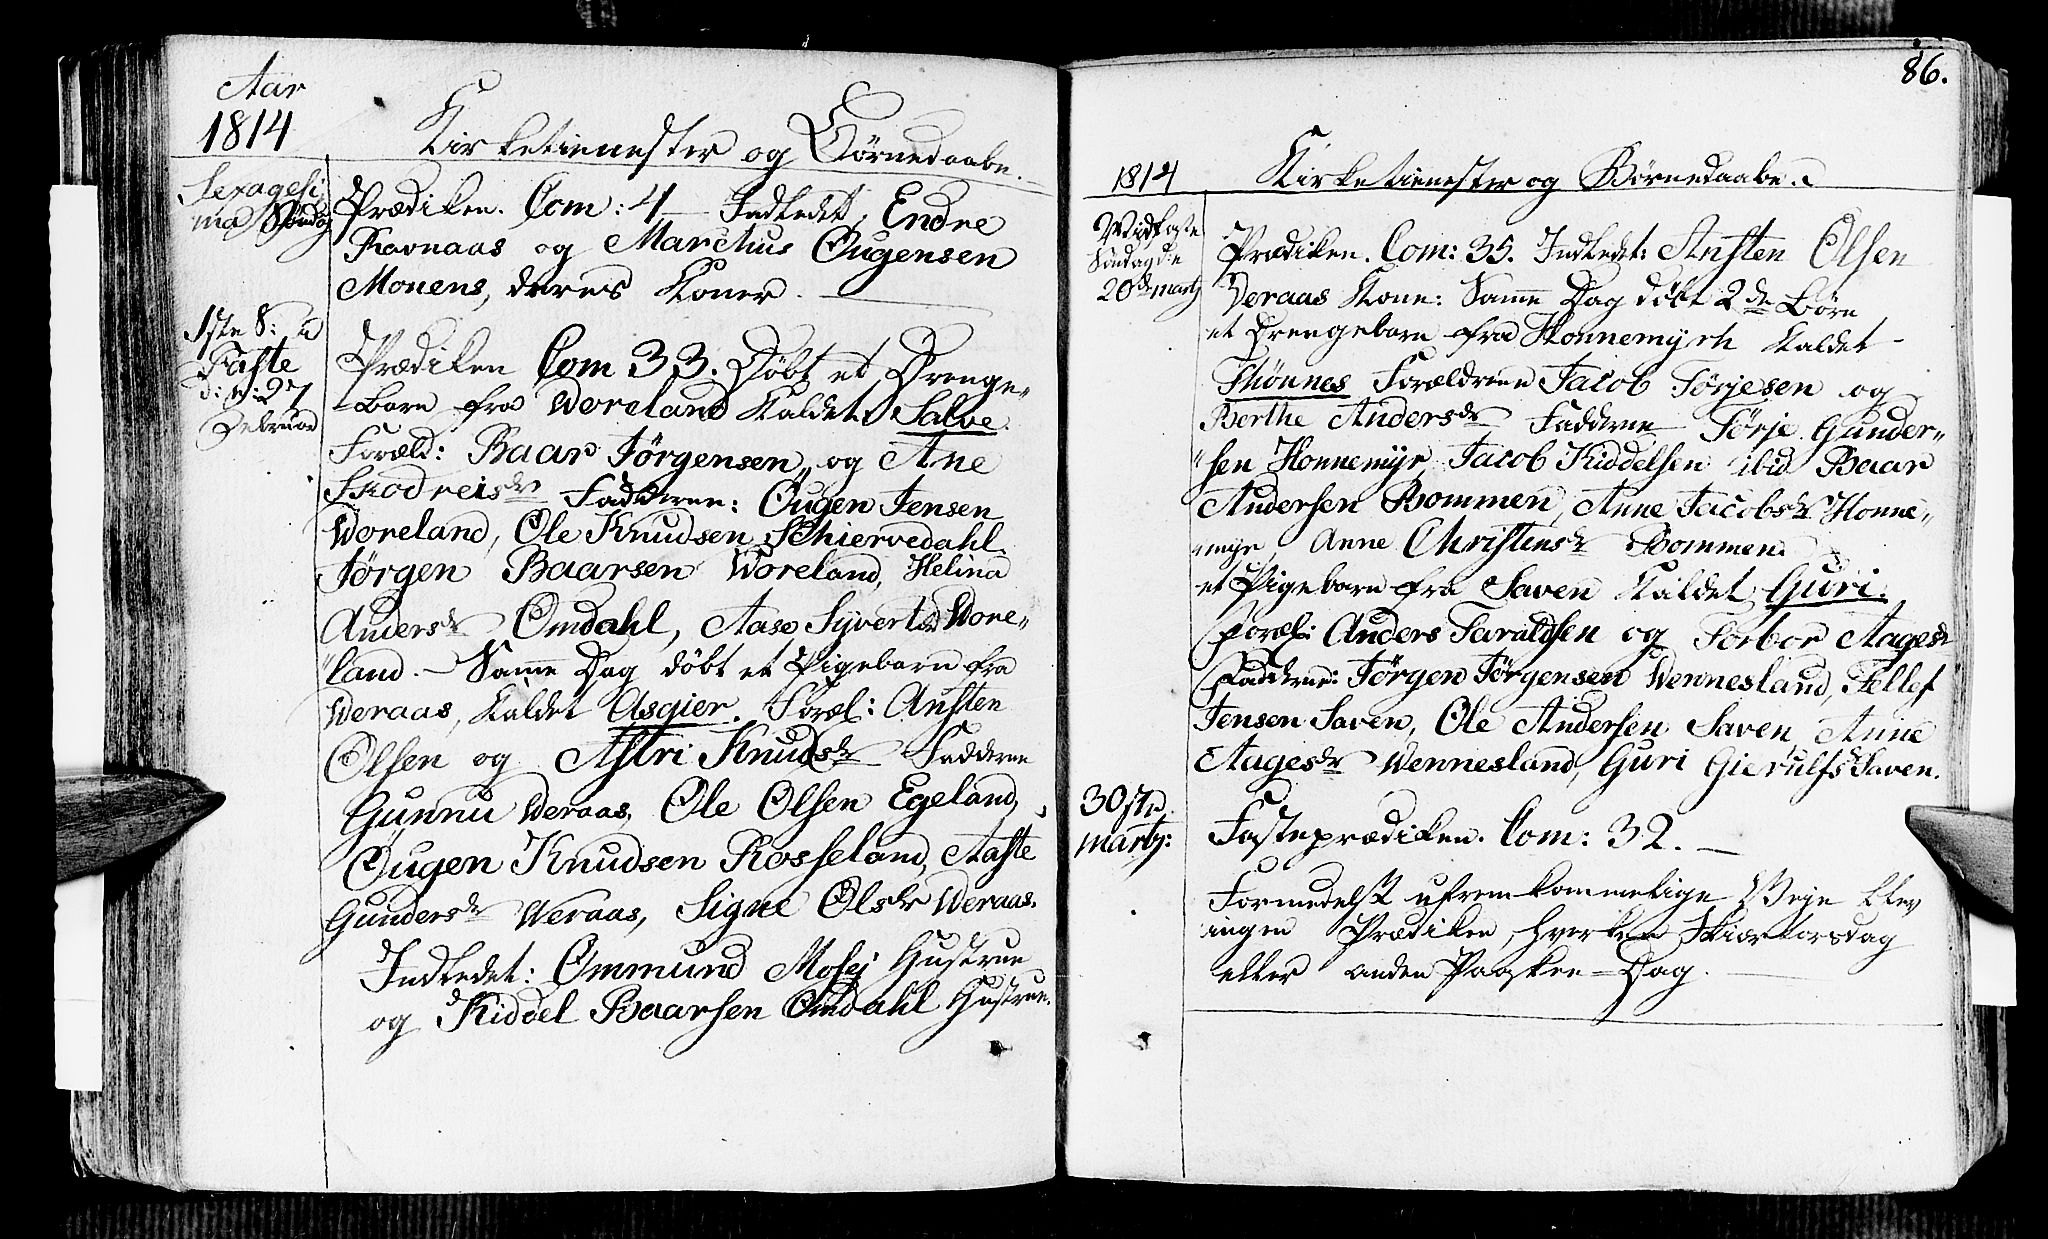 Aar
1814
Kirketienester og Börnedaabe.
Sexagesi
ma Söndag
Prædiken. Com: 4 — Indledet, Endre
Ravnaas og Marchus Ougensen
Monens, deres Koner. —
1ste S: i
Faste
d: 27
Februar
Prædiken Com 33. Döbt et Drenge„
Barn fra Woreland kaldet Salve
Foræld: Baar Jörgensen og Ane
Skodreisdr Fadderne: Ougen Jensen
Woreland, Ole Knudsen Schiervedahl
Jörgen Baarsen Woreland, Helina
Andersdr Omdahl, Aase Syvertsdr Wore„
„land. — Samme Dag döbt et Pigebarn fra
Weraas, kaldet Asgier. Foræl: Ansten
Olsen og Astri Knudsdr Fadderne
Gunnu Weraas, Ole Olsen Egeland,
Ougen Knudsen Rosseland, Aaste
Gundersdr Weraas, Signe Olsdr Weraas.
Indledet: Ommund Mosej Hustrue
og Kiddel Baarsen Omdahl Hustrue.
86.
1814 Kirketienester og Börnedaabe.
Midfaste
Söndag d:
20de marty
Prædiken. Com: 35. Indledet: Ansten Olsen
Veraas Kone: Samme Dag döbt 2de Börn
et Drengebarn fra Honnemyrh kaldet
Thönnes Forældrene Jacob Törjesen og
Berthe Andersdr Fadderne Törje Gunder„
„sen Honnemyr, Jacob Kiddelsen ibid Baar
Andersen Bommen, Anne Jacobsdr Honne„
myr, Anne Christensdr Bommen.
et Pigebarn fra Saven kaldet Guri.
Foræl: Anders Taraldsen og Torbor Aagesdr
Fadderne: Jörgen Jörgensen Wennesland, Tellef
Jensen Saven, Ole Andersen Saven Anne
Aagesdr Wennesland, Guri Gierulfsdr Saven.
30ste
marty:
Fasteprædiken. Com: 32. —
Formedelst ufremkommelige Veje blev
ingen Prædiken, hverken Skiærtorsdag
eller anden Paaske-Dag. —